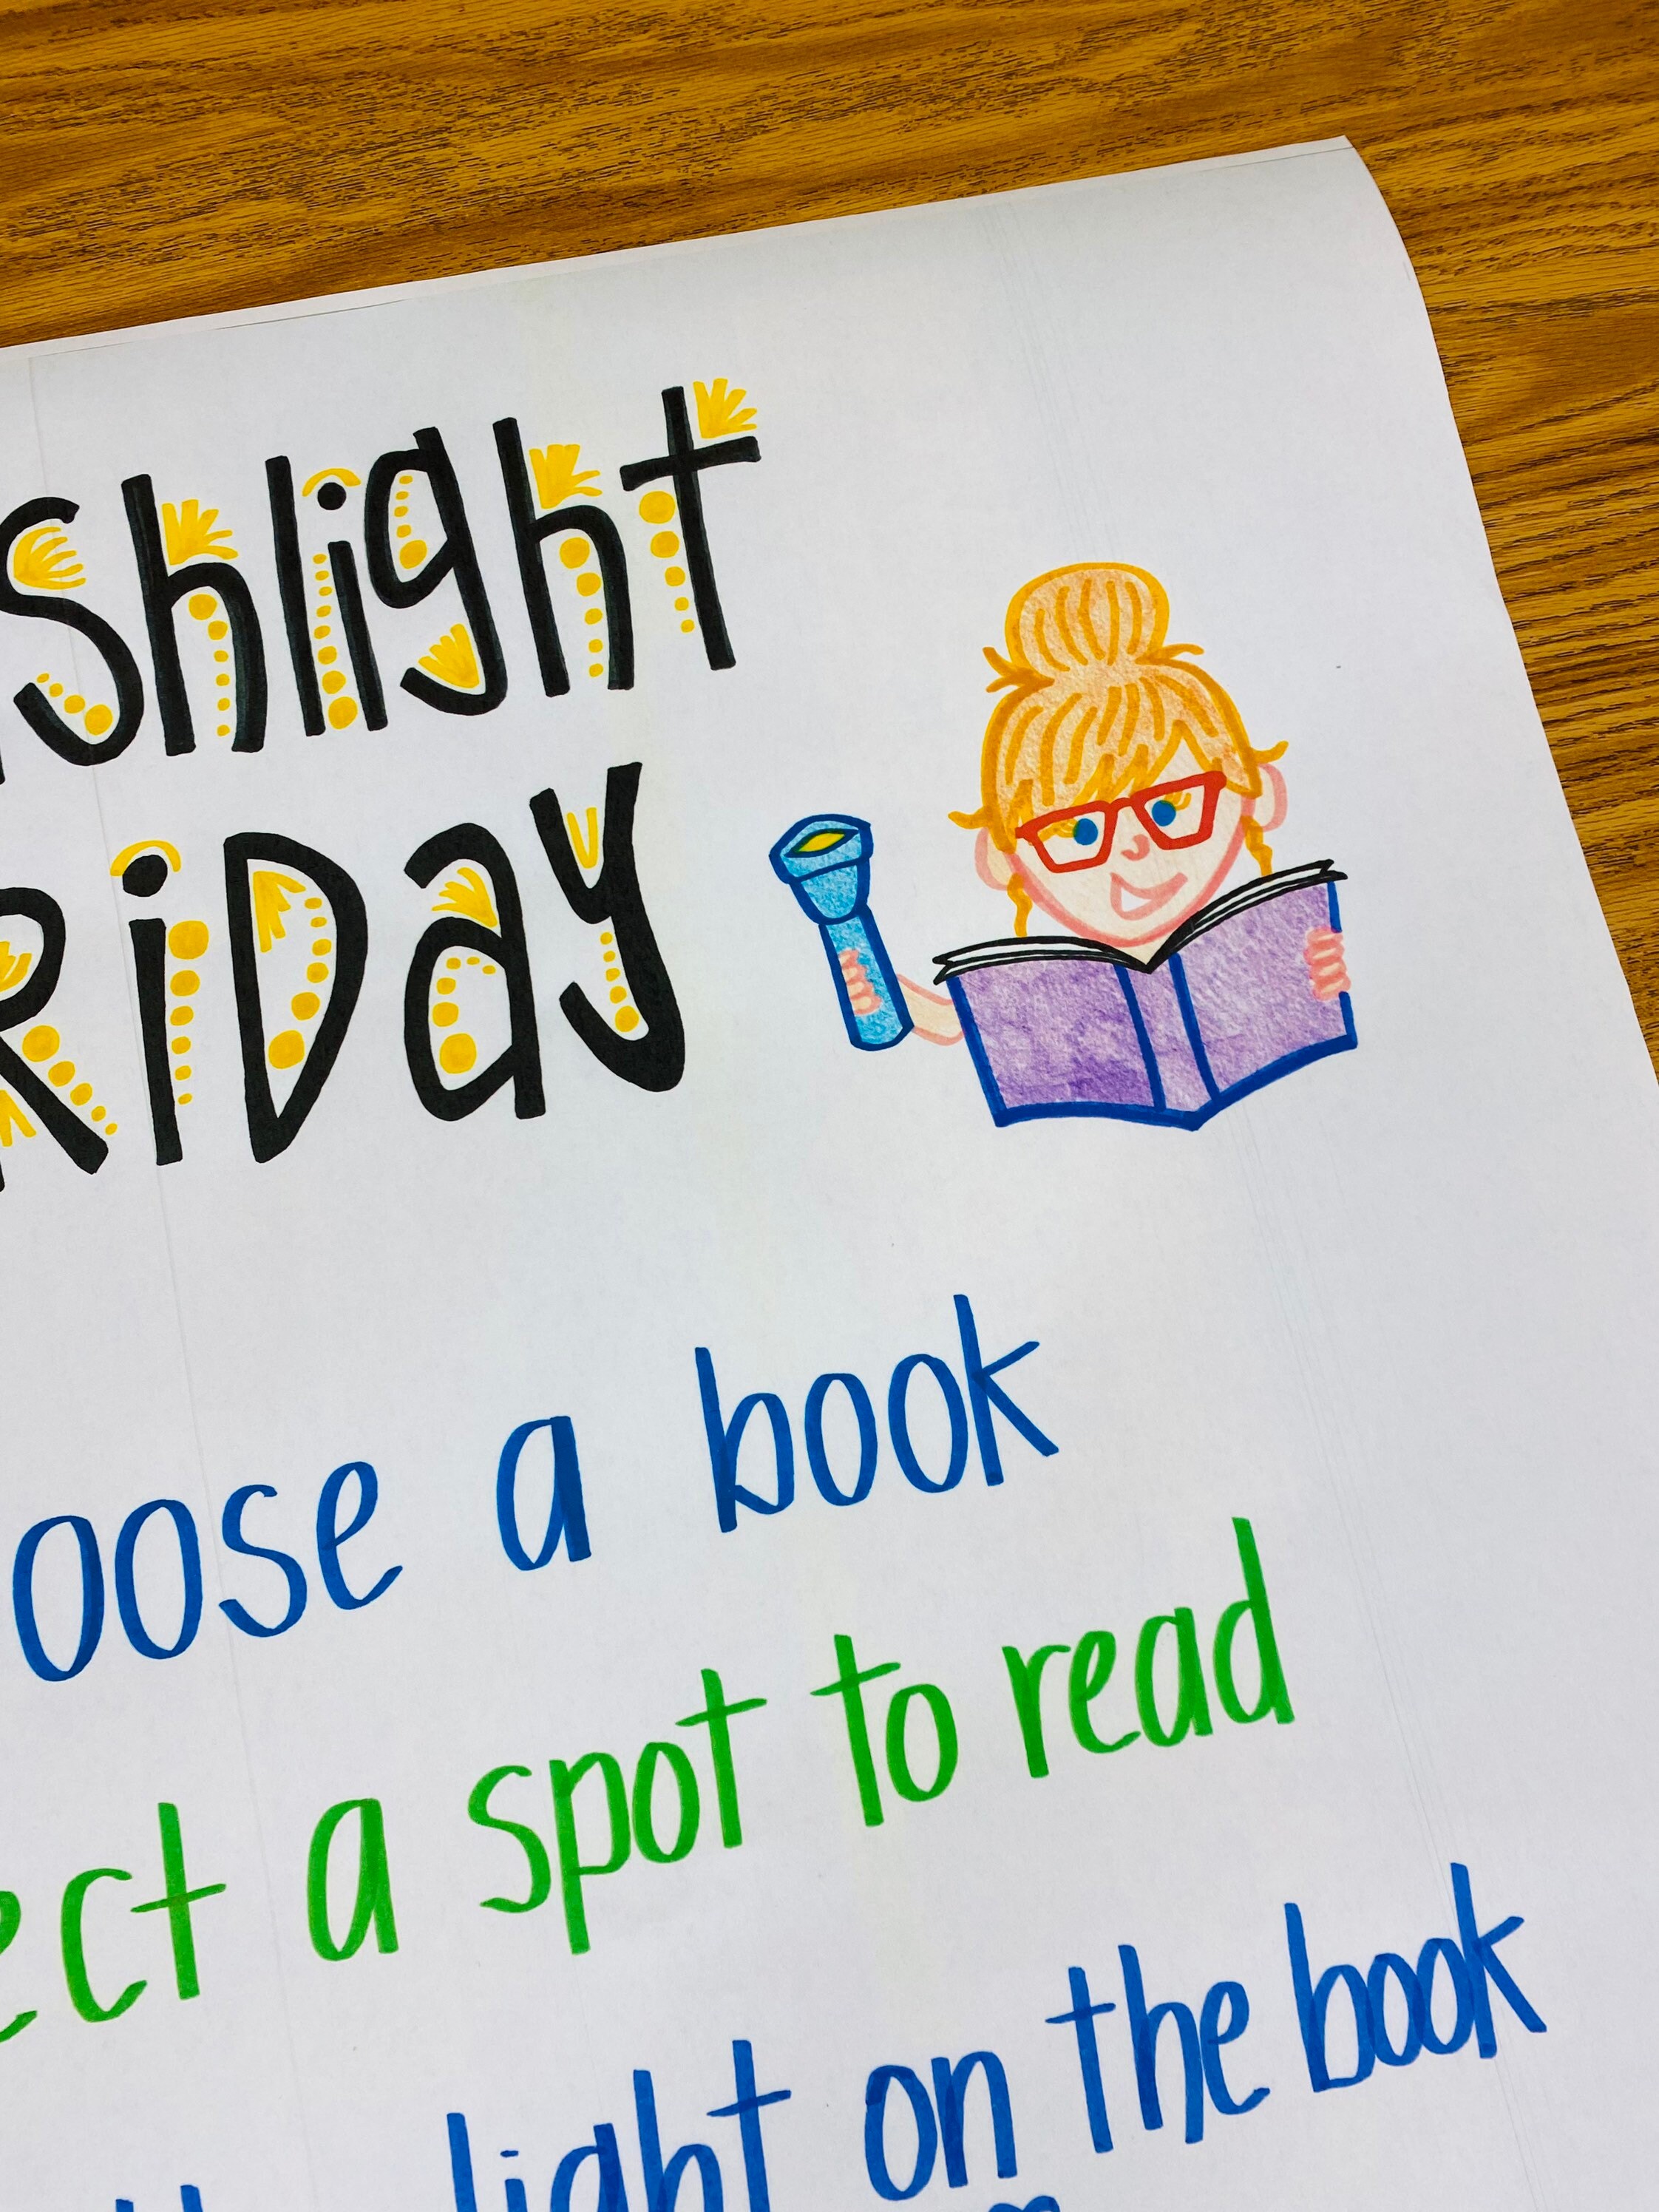 shlight
RiDay
oose a book
ect a spot to read
light on the book